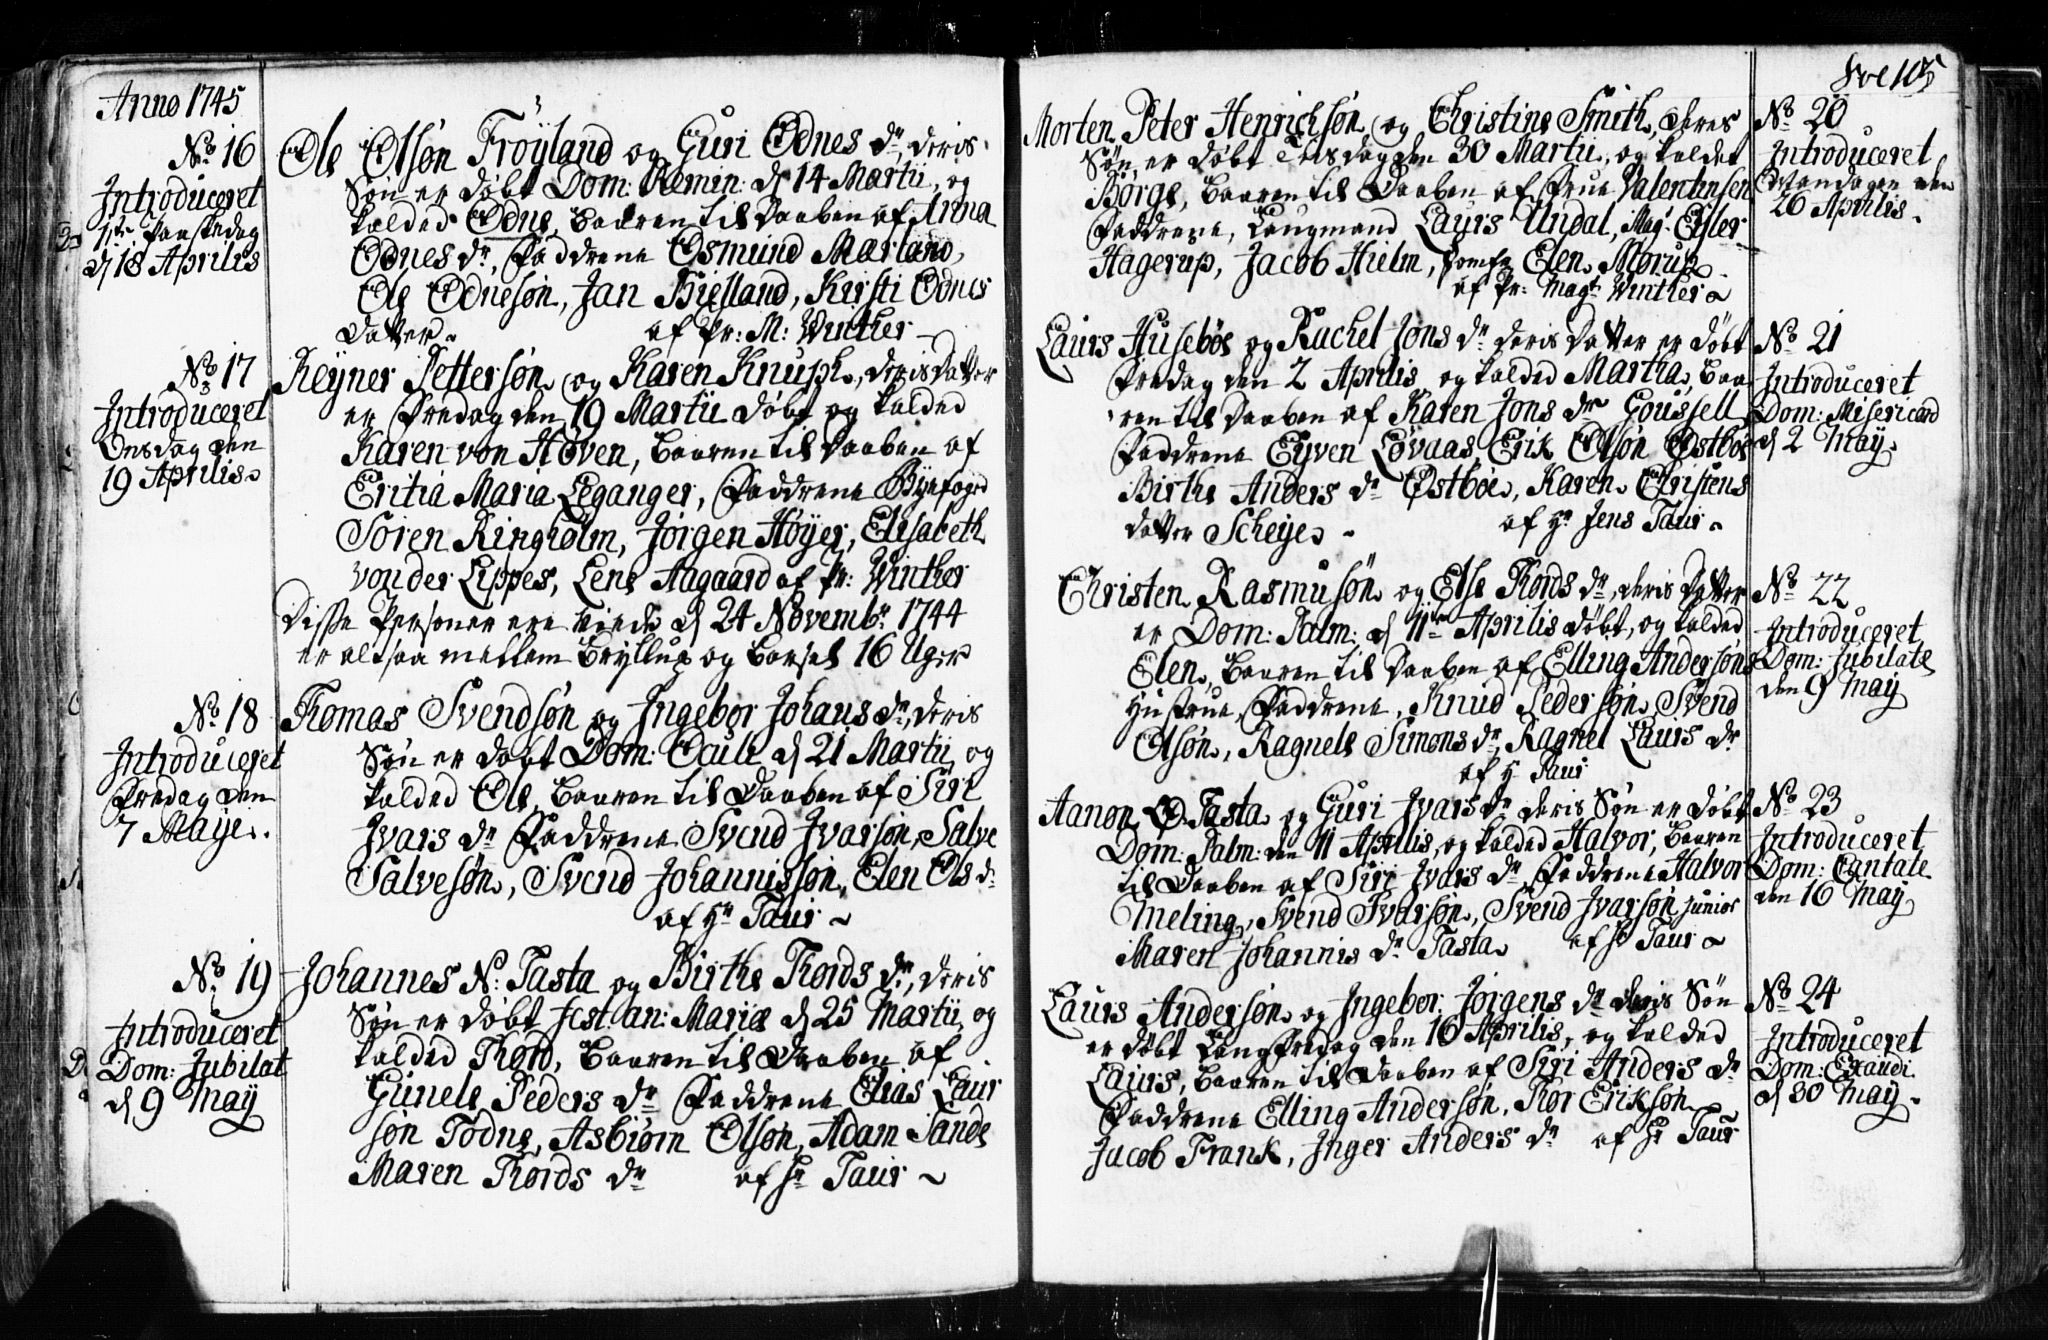 Anno 1745
No 16
Introduceret
1ste Paaskedag
d 18 Aprilis
Ole Olsøn Frøyland og Guri Odnes dr, deris
Søn er døbt Dom: Remin: d 14 Martii, og
kalded Odne, baaren til Daaben af Anna
Odnes dr, Faddrene Osmund Mærland,
Ole Odnesøn, Jan Hielland, Kirsti Odnes
Datter. af Pr: M: Winther
No 17
Introduceret
Onsdag den
19 Aprilis
Reyner Pettersøn og Karen Knuph, deris Datter
er Fredag den 19 Martii døbt og kalded
Karen von Høven, baaren til Daaben af
Eritia Maria Leganger, Faddrene Byefoged
Søren Ringholm, Jørgen Høyer, Elisabeth
von der Lippes, Lene Aagaard af Pr: Winther
Disse Personer ere viede d 24 Novembr 1744
er altsaa mellem Bryllup og Barsel 16 Uger
No 18
Introduceret
Fredag den
7 Maye.
Thomas Svendsøn og Ingebor Johans dr, deris
Søn er døbt Dom: Oculi d 21 Martii og
kalded Ole, baaren til Daaben af Siri
Ivars dr Faddrene Svend Ivarsøn, Salve
Salvesøn, Svend Johannissøn, Elen Ols dr
af Hr Taur
No 19
Introduceret
Dom: Jubilat
d 9 May
Johannes N: Tasta og Birthe Thords dr, deris
Søn er døbt Fest: an: Mariæ d 25 Martii og
kalded Thord, baaren til Daaben af
Gunele Peders dr Faddrene Elias Laur
søn Todne, Asbiørn Olsøn, Adam Sande
Maren Thords dr af Hr Taur
Fol 105
Morten Peter Henrichsøn og Christine Smith, deres
Søn er døbt Tisdag den 30 Martii, og kaldet
Børge, baaren til Daaben af Frue Valentinsen
Faddrene, Laugmand Laurs Undal, Mag: Eyler
Hagerup, Jacob Hielm, Jomfr Elen Morup
af Pr: Magr Winther
No 20
Introduceret
Mandagen den
26 Aprilis.
Laurs Husebøe og Rachel Jons dr deris Datter er døbt
Fredag den 2 Aprilis og kalded Martha, baa
ren til Daaben af Karen Jons dr Goussell
Faddrene Eyven Løvaas, Erik Olsøn Østbøe
Birthe Anders dr Østbøe, Karen Christens
datter Scheye. af Hr Jens Taur
No 21
Introduceret
Dom: Misericard
d 2 May.
Christen Rasmusøn og Else Thords dr, deris Datter
er Dom: Palm: d 11te Aprilis døbt, og kalded
Elen, baaren til Daaben af Elling Andersøns
Hustrue, Faddrene, Knud Pedersøn, Svend
Olsøn, Ragnele Simons dr, Ragnel Laurs dr
af H Taur
No 22
Introduceret
Dom: Jubilate
den 9 May
Aanon O Tasta og Guri Ivars dr deris Søn er døbt
Dom: Palm: den 11 Aprilis, og kalded Halvor, baaren
til Daaben af Siri Ivars dr, Faddrene Halvor
Meling, Svend Ivarsøn, Svend Ivarsøn junior
Maren Johannis dr Tasta af Hr Taur
No 23
Introduceret
Dom: Cantate
den 16 May
Laurs Andersøn og Ingebor: Jørgens dr deris Søn
er døbt LangFredag den 16 Aprilis, og kalded
Laurs, baaren til Daaben af Siri Anders dr
Faddrene Elling Andersøn, Thor Eriksøn
Jacob Frank, Inger Anders dr af Hr Taur
No 24
Introduceret
Dom: Exaudi
d 30 May.